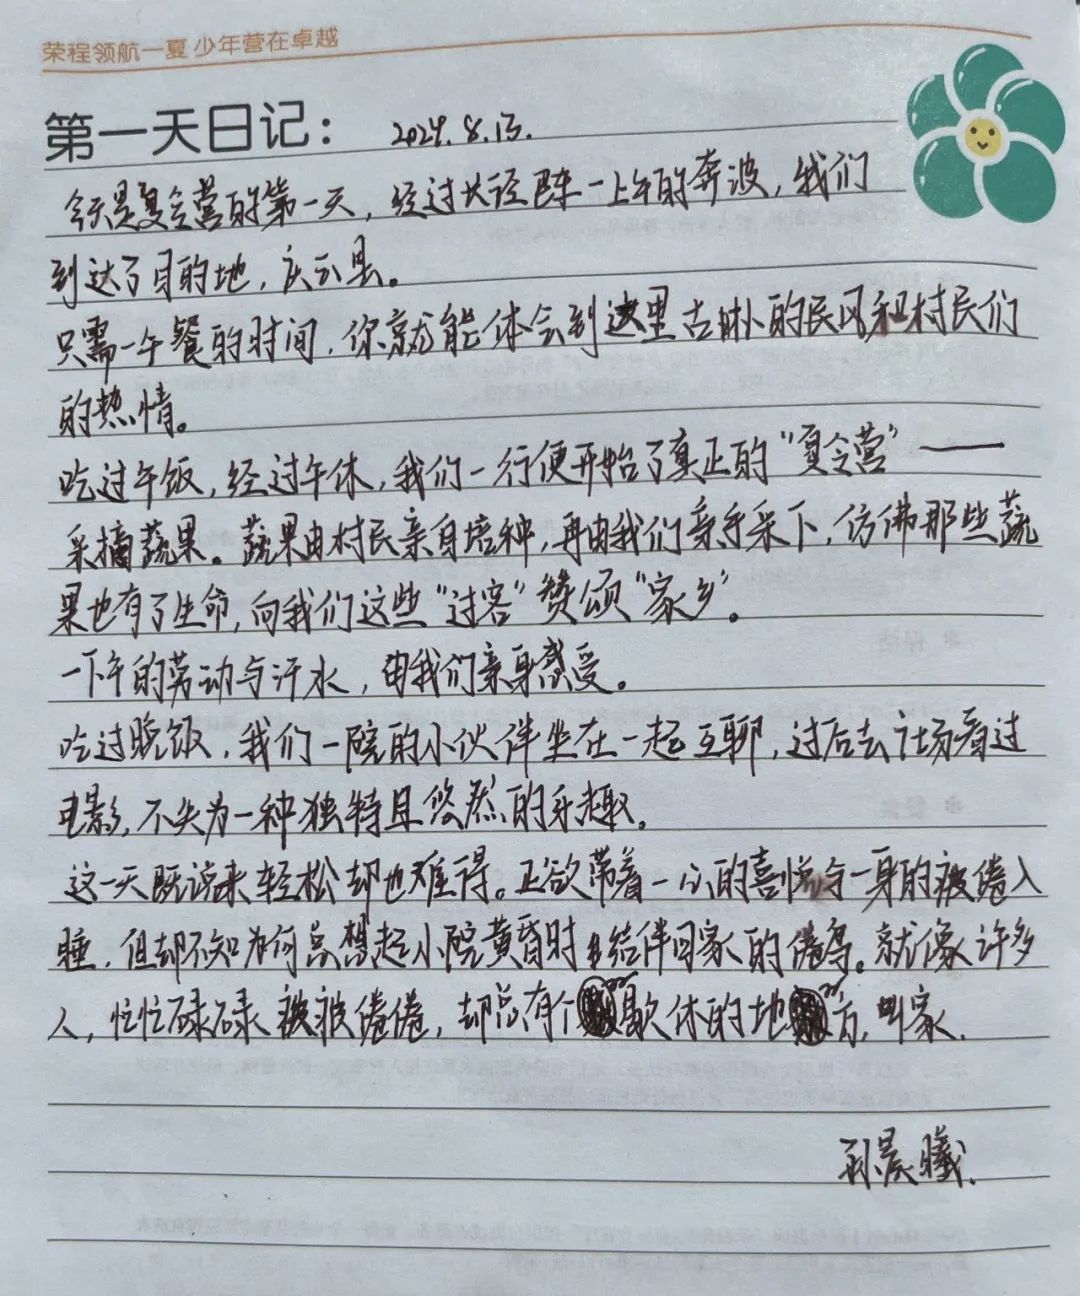 荣程领航一夏 少年营在卓越
第一天日记： 2024.8.13.
今天是夏令营的第一天，经过大巴一上午的奔波，我们
到达了目的地，庆云县。
只需一午餐的时间，你就能体会到这里古朴的民风和村民们
的热情。
吃过午饭，经过午休，我们一行便开始了真正的“夏令营”——
采摘蔬果。蔬果由村民亲自培种，再由我们亲手采下，仿佛那些蔬
果也有了生命，向我们这些“过客”赞颂“家乡”。
一下午的劳动与汗水，由我们亲身感受。
吃过晚饭，我们一院的小伙伴坐在一起互聊，过后去广场看过
电影，不失为一种独特且悠然的乐趣。
这一天既说来轻松却也难得。正欲带着一心的喜悦与一身的疲倦入
睡，但却不知为何总想起小院黄昏时结伴回家的倦鸟。就像许多
人，忙忙碌碌疲疲倦倦，却总有个歇休的地方，叫家.
孙晨曦.